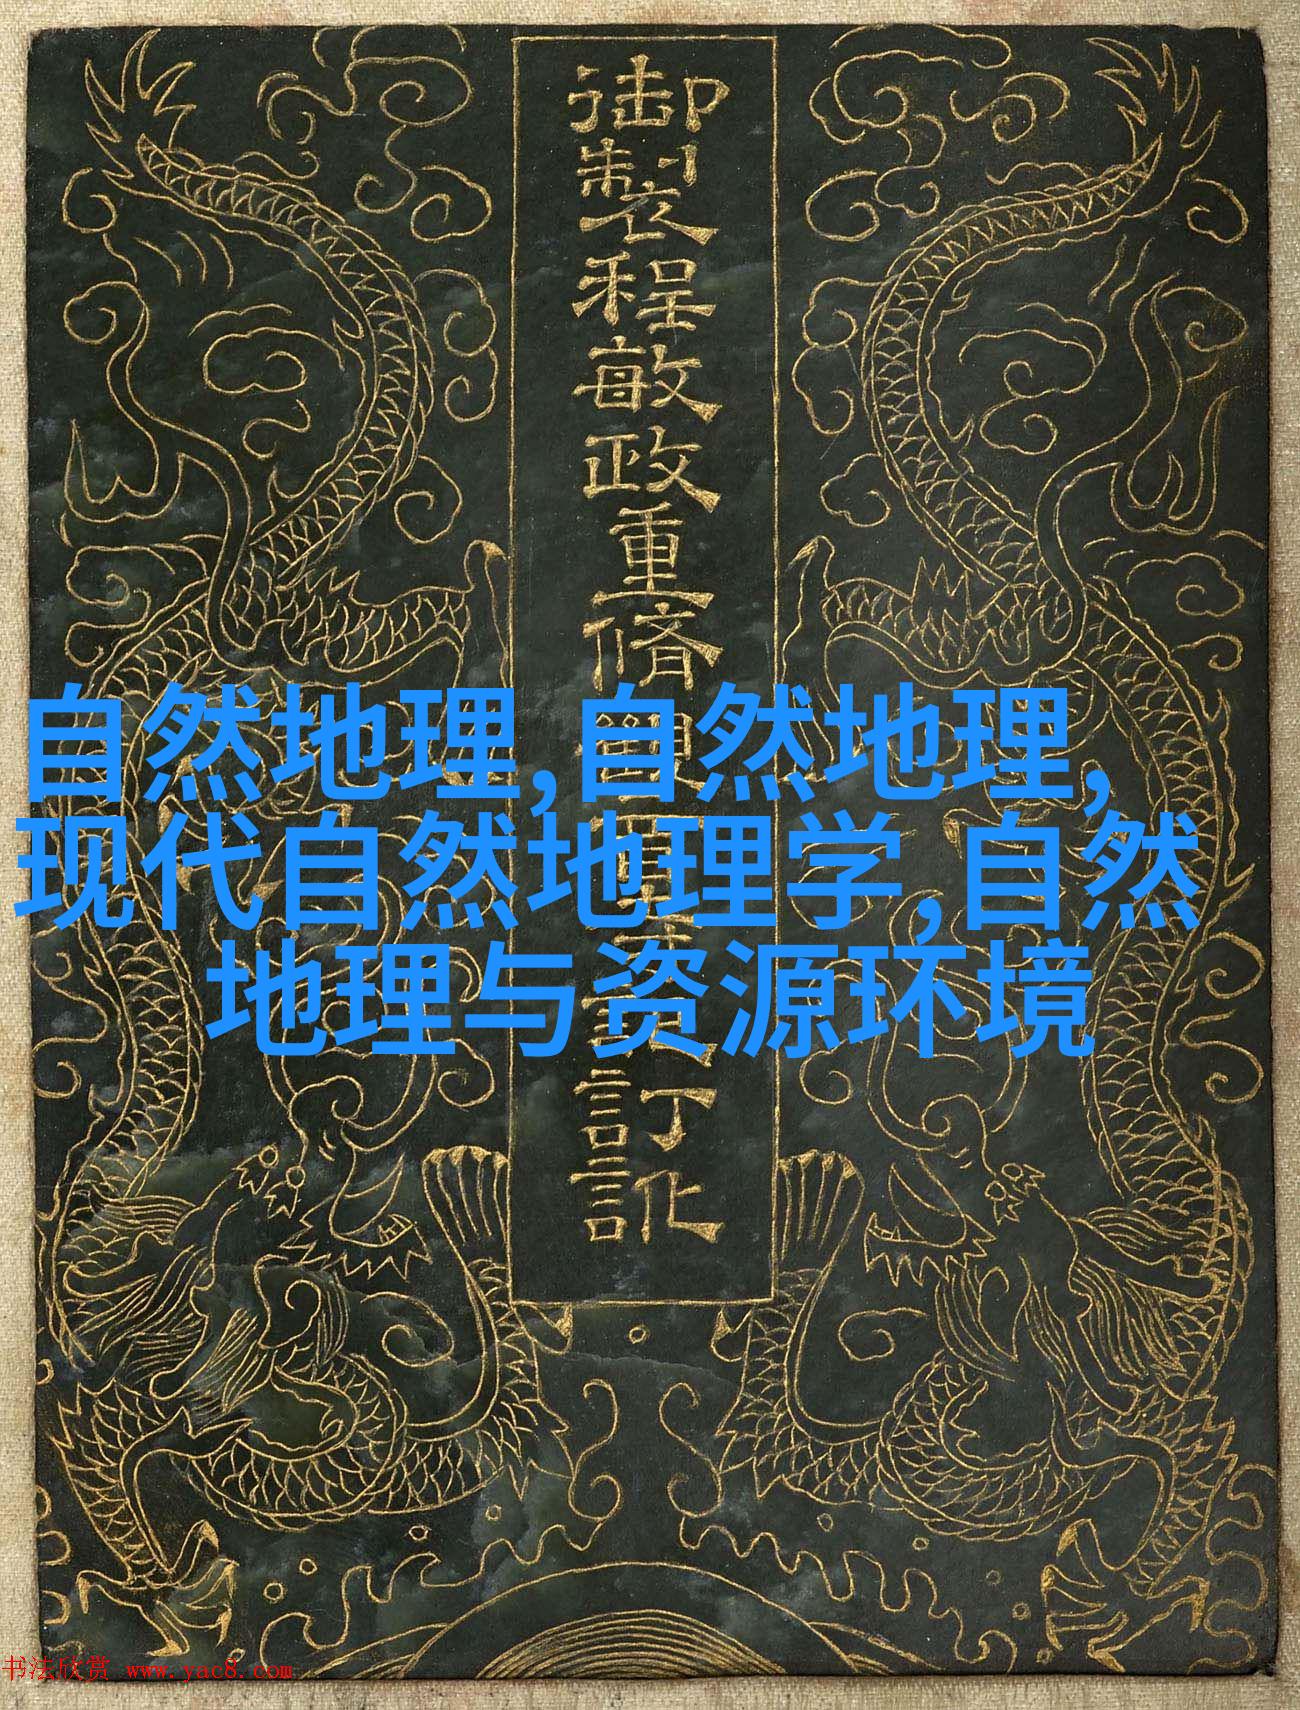 御製程敏政重脩訂訛
自然地理,自然地理,
现代自然地理学,自然
地理与资源环境
书法欣赏 www.yac8.com